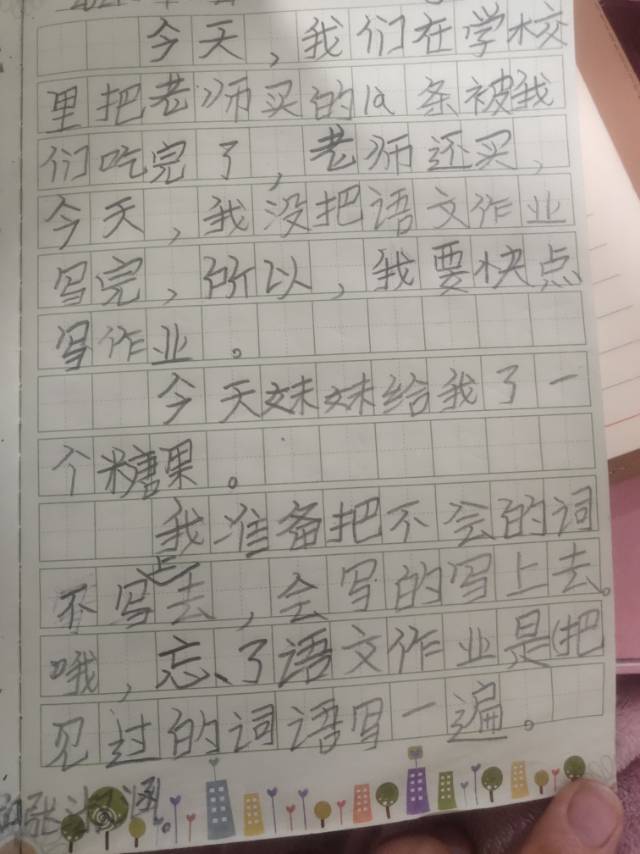 今天，我们在学校
里把老师买的la条被我
们吃完了，老师还买，
今天，我没把语文作业
写完，所以，我要快点
写作业。
今天妹妹给我了一
个糖果。
我准备把不会的词
不写上去，会写的写上去。
哦，忘了语文作业是(把
见过的词语写一遍。